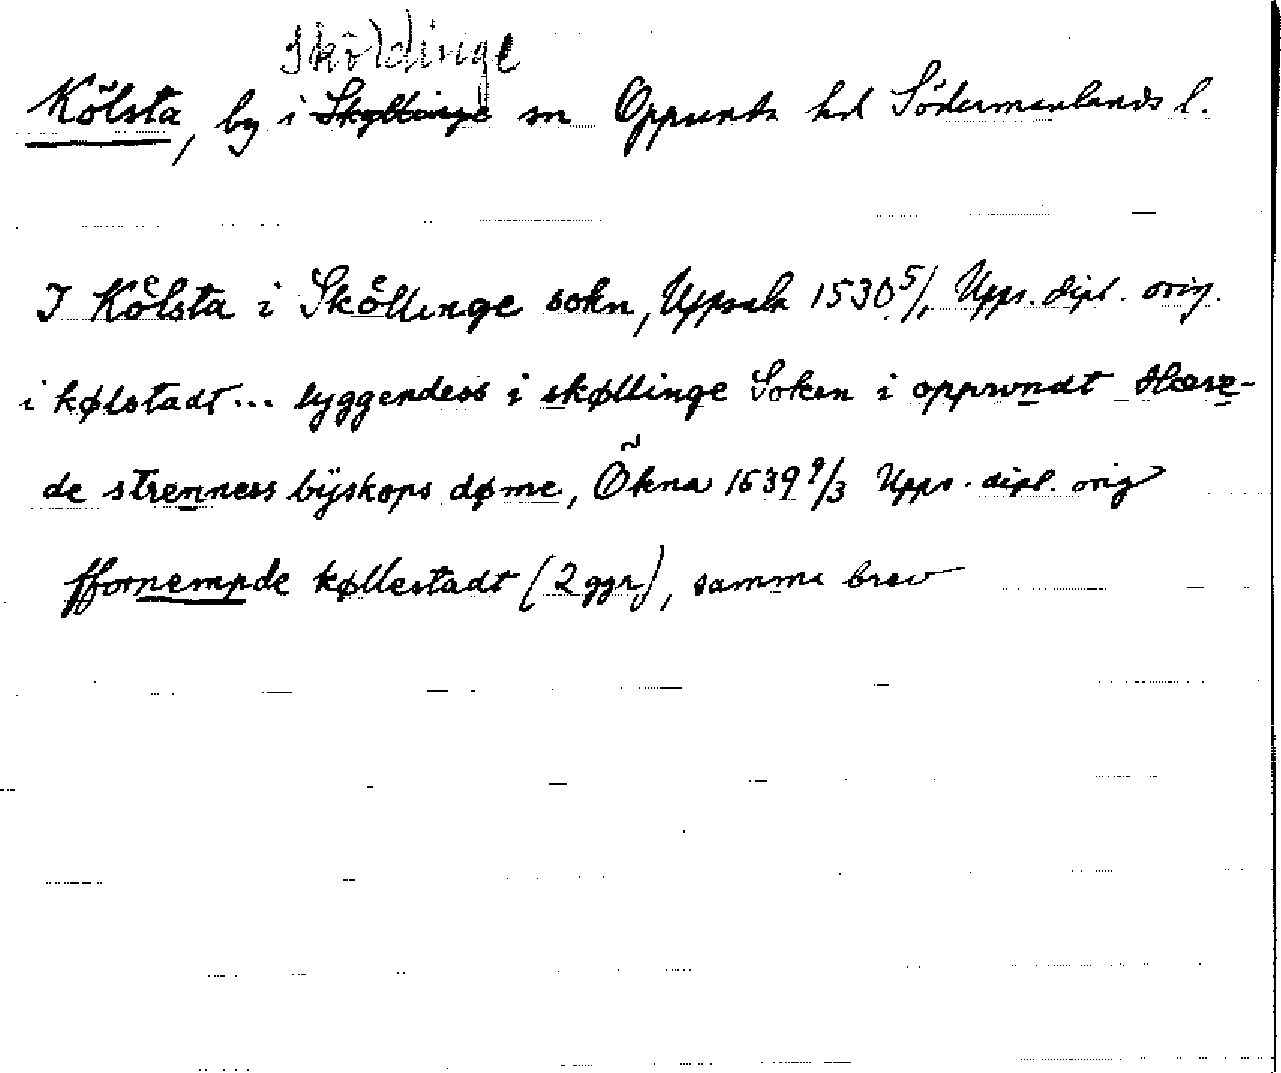 Sköldinge
Kölsta, by i Skyttinge sn Oppunda hd Södermanlands l.
I Kølsta i Sköllinge sokn, Upsala 1530 5/1 Upps. dipl. orig.
i kølstadt... lyggendess i skøllinge Soken i oppwndt Hære-
de strenness bijskops døme, Økna 1539 9/3 Upps. dipl. orig
ffornempde køllestadt (2 ggr), samma brev